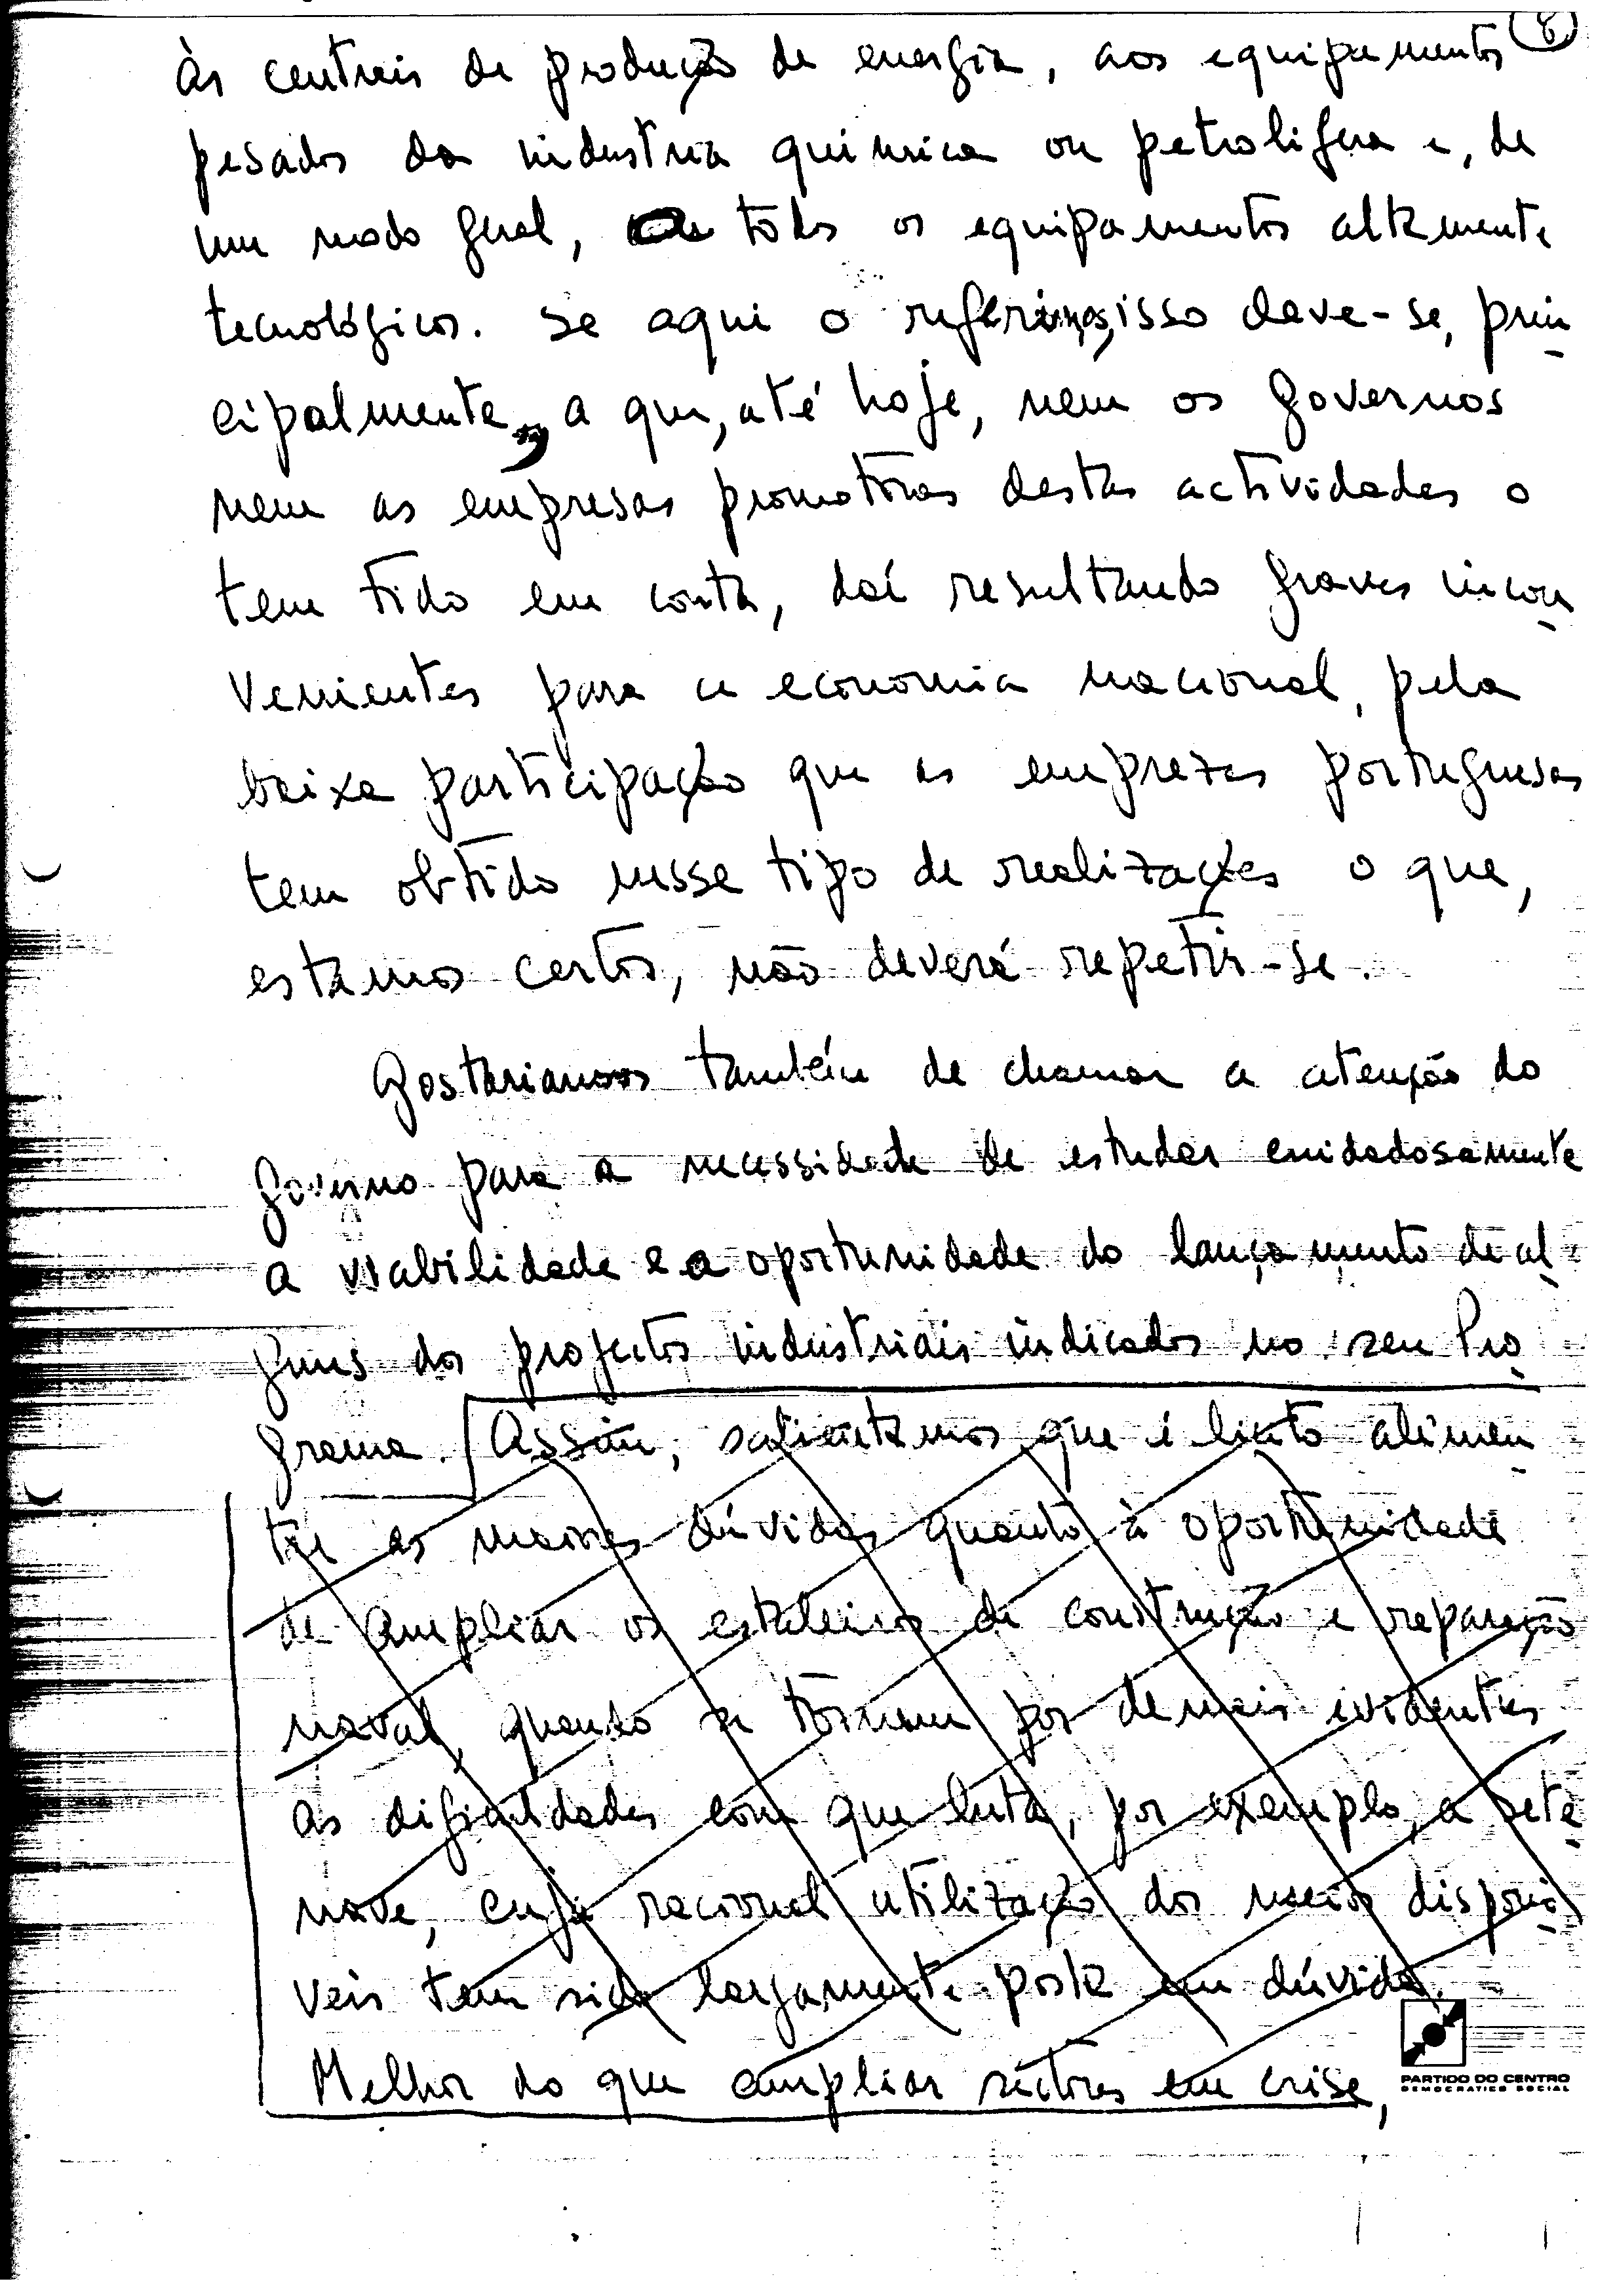 8
às centrais de produção de energia, aos equipamentos
pesados da industria quimica ou petrolifera e, de
um modo geral, a todos os equipamentos altamente
tecnológicos. Se aqui o referimos, isso deve-se, prin
cipalmente, a que, até hoje, nem os governos
nem as empresas promotoras destas actividades o
tem tido em conta, daí resultando graves incon
venientes para a economia nacional, pela
baixa participação que as emprezas portuguesas
tem obtido nesse tipo de realizações o que,
estamos certos, não deverá repetir-se.
Gostariamos também de chamar a atenção do
Governo para a necessidade de estudar cuidadosamente
a viabilidade e a oportunidade do lançamento de al
guns dos projectos industriais indicados no seu Pro
grama. Assim, salientamos que é licito alimen
tar as maiores dúvidas quanto à oportunidade
de ampliar os estaleiros de construção e reparação
naval, quando se tornam por demais evidentes
as dificuldades com que luta, por exemplo, a Sete
nave, cuja racional utilização dos meios disponi
veis tem sido largamente posta em dúvida.
Melhor do que ampliar sectores em crise,
PARTIDO DO CENTRO
DEMOCRATICO SOCIAL